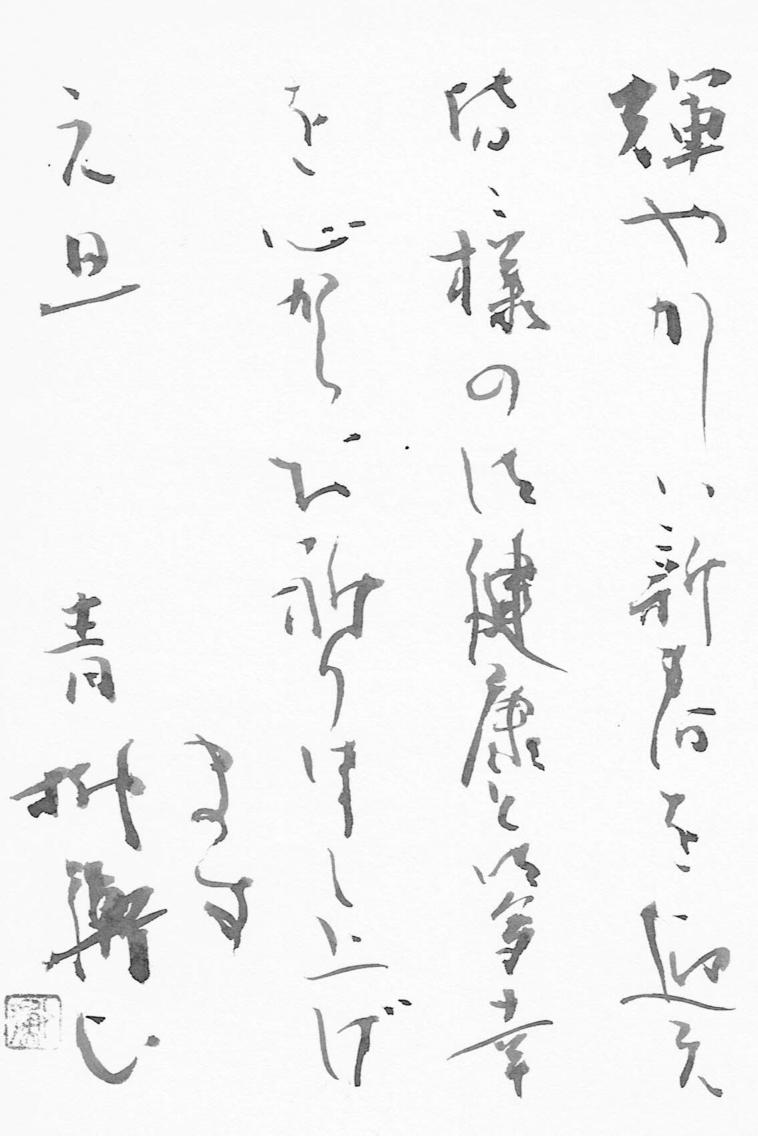 輝やかしい新春を迎え
皆々様の御健康と御多幸
を心からお祈り申し上げ
ます
元旦
青